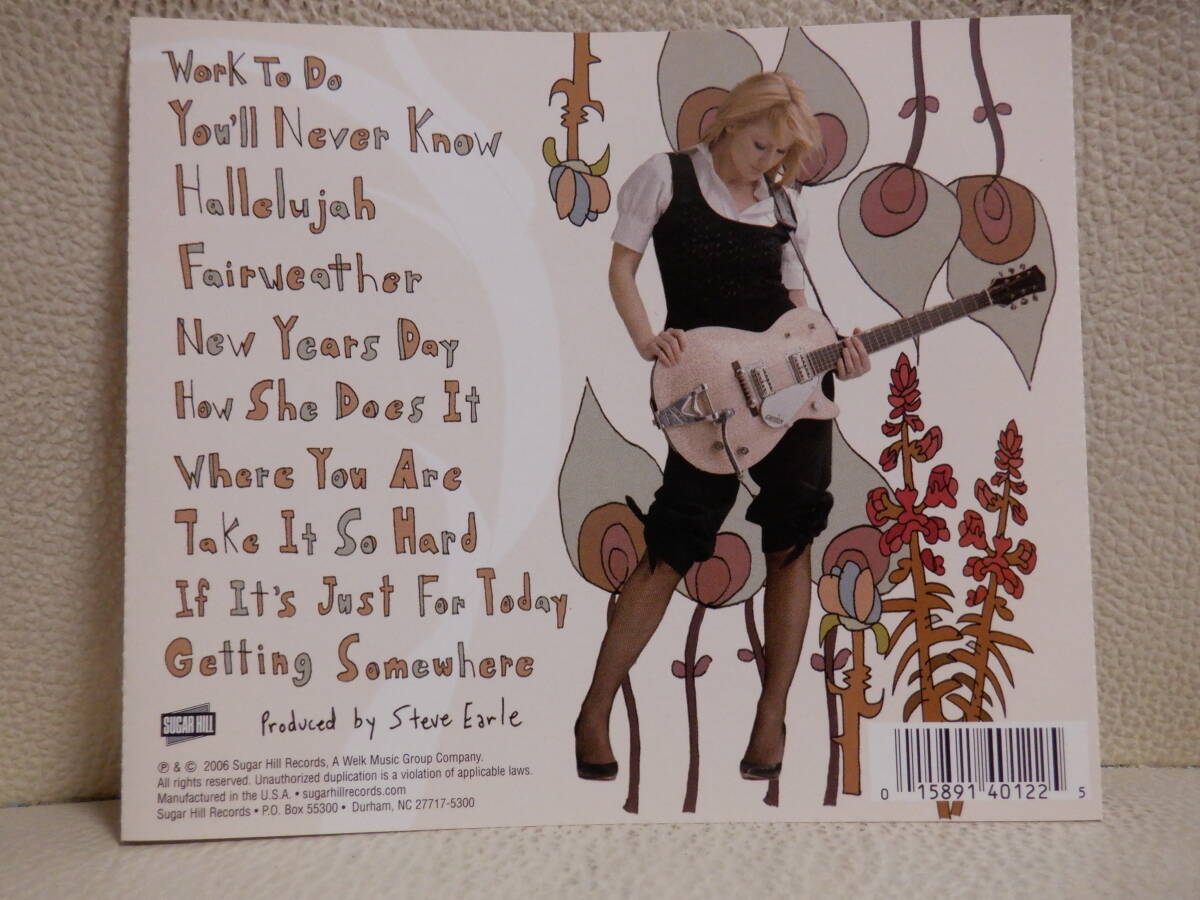 Work To Do
You'll Never Know
Hallelujah
Fairweather
New Years Day
How She Does It
Where You Are
Take It So Hard
If It's Just For Today
Getting Somewhere
SUGAR HILL
Produced by Steve Earle
℗ & © 2006 Sugar Hill Records, A Welk Music Group Company.
All rights reserved. Unauthorized duplication is a violation of applicable laws.
Manufactured in the U.S.A. • sugarhillrecords.com
Sugar Hill Records • P.O. Box 55300 • Durham, NC 27717-5300
0 15891 40122 5